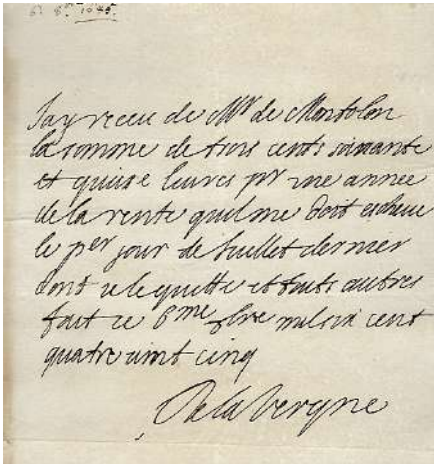 6e 8bre 1685.
Jay receu de Mr de Montolon
la somme de trois cents soixante
et quinse livres pr une année
de la rente quil me doit escheue
le per jour de Juillet dernier
dont je le quitte et touts autres
fait ce 6me 8bre mil six cent
quatre vint cinq
De la Vergne